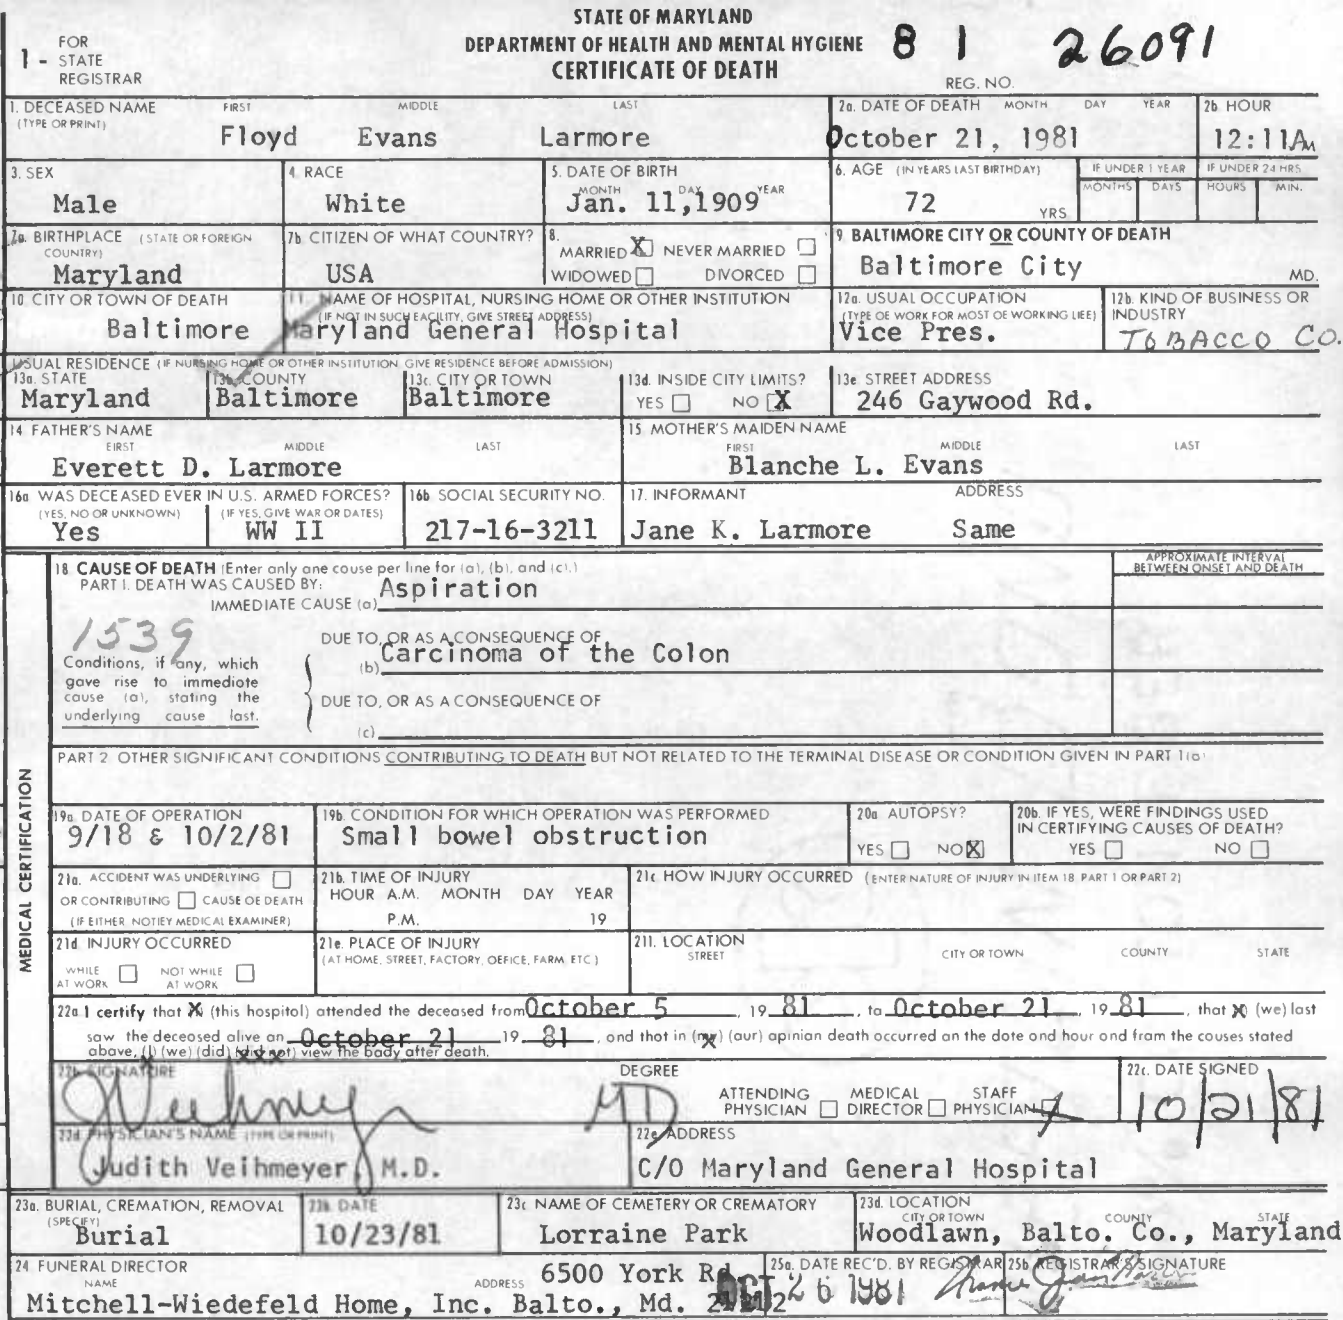 STATE OF MARYLAND
DEPARTMENT OF HEALTH AND MENTAL HYGIENE
CERTIFICATE OF DEATH
1 - FOR STATE REGISTRAR
8 1 26091
REG. NO.
1. DECEASED NAME (TYPE OR PRINT) FIRST MIDDLE LAST
Floyd Evans Larmore
2a. DATE OF DEATH MONTH DAY YEAR
October 21, 1981
2b HOUR
12:11AM
3. SEX
Male
4. RACE
White
5. DATE OF BIRTH MONTH DAY YEAR
Jan. 11,1909
6. AGE (IN YEARS LAST BIRTHDAY)
72 YRS
IF UNDER 1 YEAR MONTHS DAYS
IF UNDER 24 HRS HOURS MIN.
7a. BIRTHPLACE (STATE OR FOREIGN COUNTRY)
Maryland
7b CITIZEN OF WHAT COUNTRY?
USA
8. MARRIED X NEVER MARRIED
WIDOWED DIVORCED
9. BALTIMORE CITY OR COUNTY OF DEATH
Baltimore City MD.
10. CITY OR TOWN OF DEATH
Baltimore
11. NAME OF HOSPITAL, NURSING HOME OR OTHER INSTITUTION
(IF NOT IN SUCH FACILITY, GIVE STREET ADDRESS)
Maryland General Hospital
12a. USUAL OCCUPATION
(TYPE OF WORK FOR MOST OF WORKING LIFE)
Vice Pres.
12b. KIND OF BUSINESS OR INDUSTRY
TOBACCO CO.
USUAL RESIDENCE (IF NURSING HOME OR OTHER INSTITUTION GIVE RESIDENCE BEFORE ADMISSION)
13a. STATE
Maryland
13b. COUNTY
Baltimore
13c. CITY OR TOWN
Baltimore
13d. INSIDE CITY LIMITS?
YES NO X
13e STREET ADDRESS
246 Gaywood Rd.
14 FATHER'S NAME FIRST MIDDLE LAST
Everett D. Larmore
15. MOTHER'S MAIDEN NAME FIRST MIDDLE LAST
Blanche L. Evans
16a WAS DECEASED EVER IN U.S. ARMED FORCES?
(YES, NO OR UNKNOWN) (IF YES, GIVE WAR OR DATES)
Yes WW II
16b SOCIAL SECURITY NO.
217-16-3211
17. INFORMANT ADDRESS
Jane K. Larmore Same
MEDICAL CERTIFICATION
18 CAUSE OF DEATH (Enter only one cause per line for (a), (b), and (c).)
APPROXIMATE INTERVAL BETWEEN ONSET AND DEATH
PART I. DEATH WAS CAUSED BY:
IMMEDIATE CAUSE (a) Aspiration
1539
DUE TO, OR AS A CONSEQUENCE OF
(b) Carcinoma of the Colon
Conditions, if any, which gave rise to immediate cause (a), stating the underlying cause last.
DUE TO, OR AS A CONSEQUENCE OF
(c)
PART 2 OTHER SIGNIFICANT CONDITIONS CONTRIBUTING TO DEATH BUT NOT RELATED TO THE TERMINAL DISEASE OR CONDITION GIVEN IN PART 1(a)
19a. DATE OF OPERATION
9/18 & 10/2/81
19b. CONDITION FOR WHICH OPERATION WAS PERFORMED
Small bowel obstruction
20a AUTOPSY?
YES NO X
20b. IF YES, WERE FINDINGS USED IN CERTIFYING CAUSES OF DEATH?
YES NO
21a. ACCIDENT WAS UNDERLYING
OR CONTRIBUTING CAUSE OF DEATH
(IF EITHER, NOTIFY MEDICAL EXAMINER)
21b. TIME OF INJURY
HOUR A.M. MONTH DAY YEAR
P.M. 19
21c HOW INJURY OCCURRED (ENTER NATURE OF INJURY IN ITEM 18 PART 1 OR PART 2)
21d. INJURY OCCURRED
WHILE AT WORK NOT WHILE AT WORK
21e. PLACE OF INJURY
(AT HOME, STREET, FACTORY, OFFICE, FARM, ETC.)
21f. LOCATION
STREET CITY OR TOWN COUNTY STATE
22a I certify that X (this hospital) attended the deceased from October 5, 19 81, to October 21, 19 81, that X (we) last
saw the deceased alive on October 21 19 81, and that in (my) (our) opinion death occurred on the date and hour and from the causes stated
above, (I) (we) (did) (did not) view the body after death.
22b. SIGNATURE DEGREE
JVeihmeyer MD
ATTENDING PHYSICIAN MEDICAL DIRECTOR STAFF PHYSICIAN X
22c. DATE SIGNED
10/21/81
22d PHYSICIAN'S NAME (TYPE OR PRINT)
Judith Veihmeyer, M.D.
22e. ADDRESS
C/O Maryland General Hospital
23a. BURIAL, CREMATION, REMOVAL (SPECIFY)
Burial
23b. DATE
10/23/81
23c NAME OF CEMETERY OR CREMATORY
Lorraine Park
23d. LOCATION CITY OR TOWN COUNTY STATE
Woodlawn, Balto. Co., Maryland
24 FUNERAL DIRECTOR NAME ADDRESS
6500 York Rd
Mitchell-Wiedefeld Home, Inc. Balto., Md. 21212
25a. DATE REC'D. BY REGISTRAR
OCT 26 1981
25b REGISTRAR'S SIGNATURE